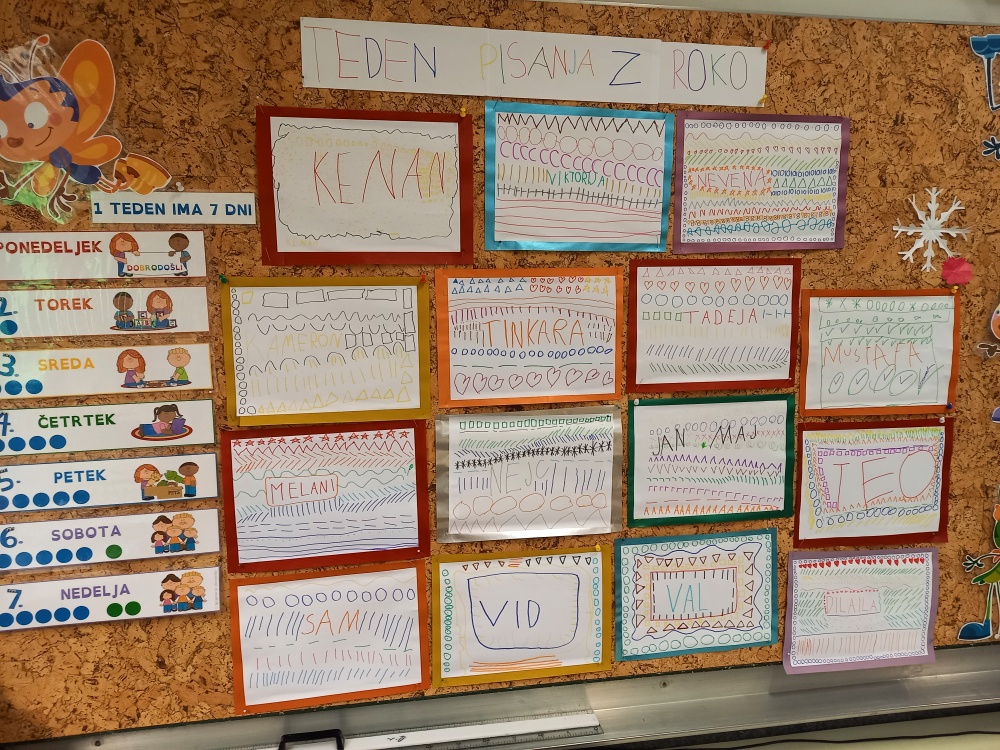 TEDEN PISANJA Z ROKO
KENAN
VIKTORIJA
NEVENA
1 TEDEN IMA 7 DNI
PONEDELJEK
DOBRODOŠLI
2. TOREK
3. SREDA
4. ČETRTEK
5. PETEK
6. SOBOTA
7. NEDELJA
KAMERON
TINKARA
TADEJA
MUSTAFA
MELANI
NEJS
JAN MAJ
TEO
SAN
VID
VAL